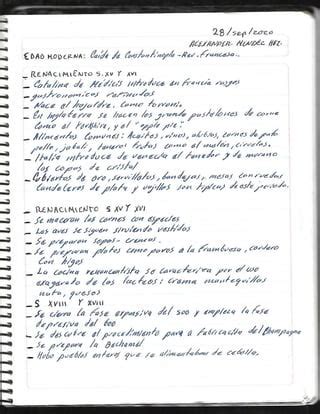 28/sep/2020
ALEXANDER MENDEZ HDZ.
EDAD MODERNA: Caída de Constantinopla - Rev. Francesa.
- RENACIMIENTO S. XV Y XVI
- Catalina de Médicis introduce en Francia rasgos
gastronomicos refinados
- Nace el hojaldre, como
- En Inglaterra se hacen los grande pastelones de carne
como el y el "apple pie".
- Alimentos Comunes: Aceites, vinos, carnes de pato
pollo, jabali, frutas como el melon, ciruelas.
- Italia introduce de venecia el tenedor y de murano
las copas de cristal
- Cubiertos de oro, servilletas, bandejas, mesas con ruedas
Candeleros de plata y vajillas son tipicas de este periodo.
- RENACIMIENTO S XV Y XVI
- Se maceran las carnes con especies
- Las aves se siguen sirviendo vestidas
- Se preparan sopas - cremas.
- Se preparan platos como pavos a la frambuesa, cordero
con higos
- La cocina renancentista se caracteriza por el uso
exagerado de los lacteos: crema mantequillas
nata, quesos
- S XVII Y XVIII
- Se cierra la fase expansiva del 500 y empieza la fase
depresiva del 600
- Se descubre el procedimiento para a fabricación del Champagne
- Se prepara la Bechamel
- Hubo pueblos enteros que se alimentaban de cebolla.